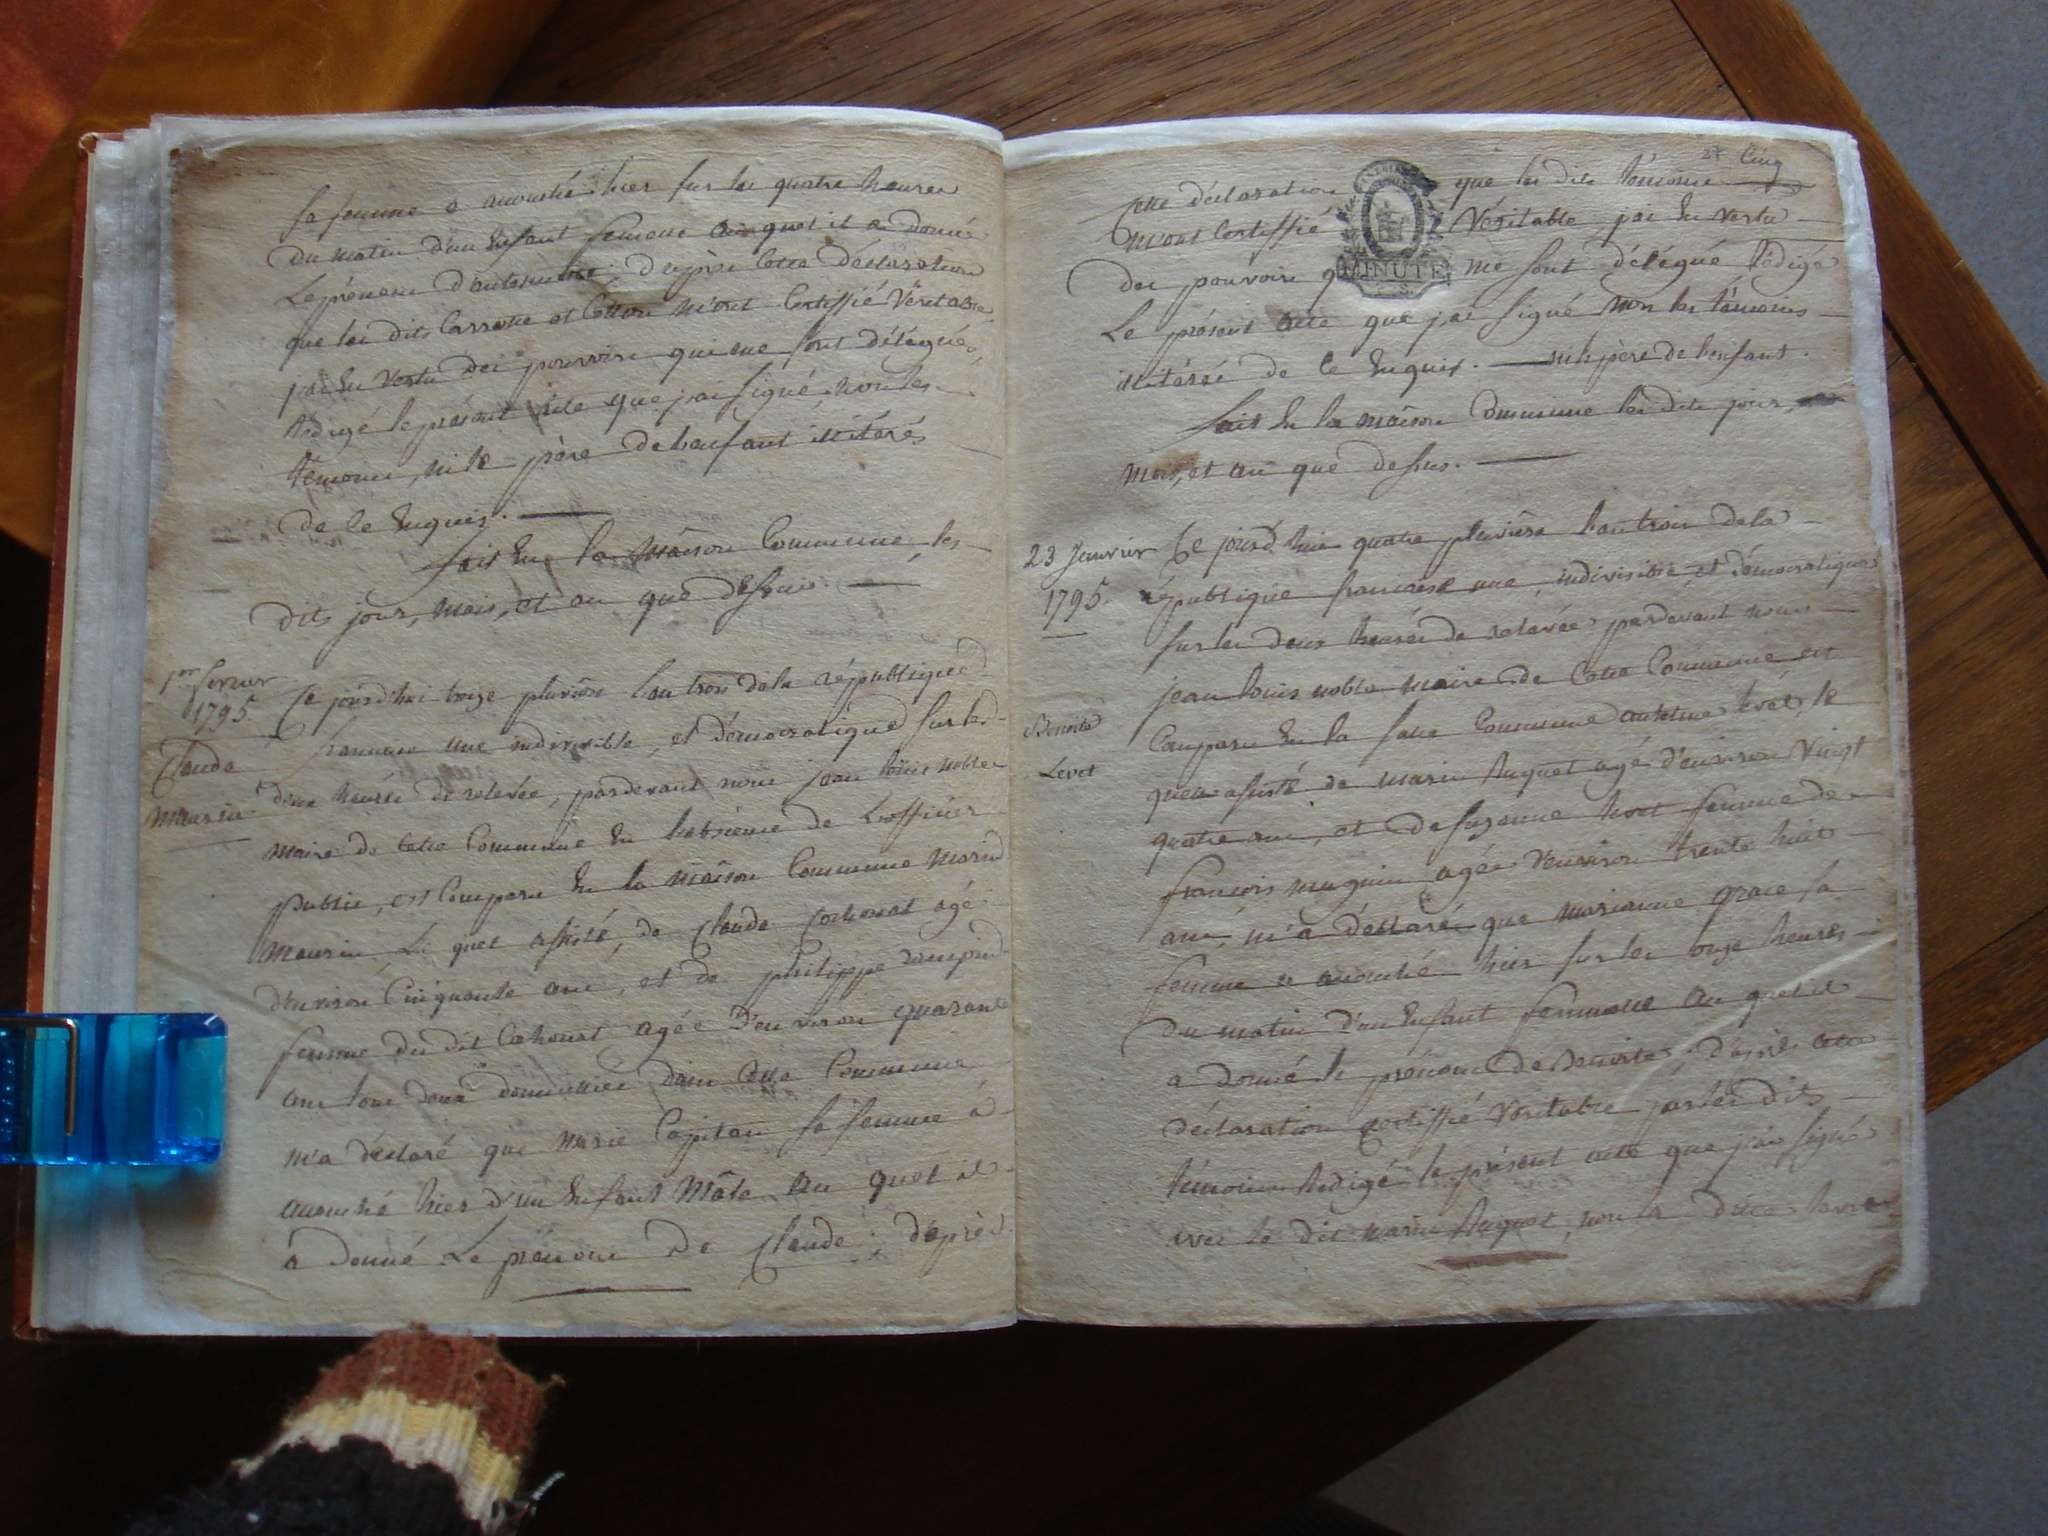 sa femme a accouché hier sur les quatre heures
du matin d'un Enfant femelle auquel il a donné
Le prénom d'antoinette, d'après cette déclaration
que les dits et m'ont Certiffié Véritable,
j'ai En vertu des pouvoirs qui me sont délégués,
Rédigé le présent acte que j'ai signé, non les
témoins, ni le père de l'enfant illitérés
de ce Enquis.
fait En la Maison Commune, les
dits jour, mois, et an que dessus.
1er fevrier
1795.
Claude
Maurin
Ce jourd'hui treize pluviôse l'an trois de la république
francaise une indivisible, et démocratique sur les
d'une heure de relevée, pardevant nous jean loüis noble
maire de cette Commune En l'absence de L'officier
public, est Comparu En la maison Commune Marin
Maurin Le quel assisté, de Claude Cochonat agé
d'environ Cinquante ans, et de philippe
femme du dit agée d'environ quarante
ans tous deux domiciliés dans cette Commune
m'a déclaré que marie Capitan sa femme à
accouché hier d'un Enfant Mâle au quel il
a donné Le prénom de Claude; d'après
27 Cinq
Cette déclaration que les dits témoins
m'ont Certiffié Véritable, j'ai En vertu
MINUTE
des pouvoirs qui me sont délégué Rédigé
Le présent acte que j'ai signé non les témoins
illitérés de ce Enquis. ni le père de l'enfant.
fait En la maison Commune les dits jour,
mois, et an que dessus.
23 Janvier
1795.
Benoite
Levet
Ce jourd'hui quatre pluviôse l'an trois de la
république francaise une, indivisible et démocratique
sur les deux heures de relevée pardevant nous
jean loüis noble maire de Cette Commune est
Comparu En la salle Commune antoine levet, le
quel assisté de marin huguet agé d'environ Vingt
quatre ans, et de suzanne levet femme de
francois muguin agée d'environ trente huit
ans, m'a déclaré que marianne grace sa
femme a accouché hier sur les onze heures
du matin d'un Enfant femmelle au quel il
a donné le prénom de Benoite; d'après cette
déclaration certiffié Véritable par les dits
témoins Rédigé le présent acte que j'ai signé
avec le dit marin huguet, non la dite levet